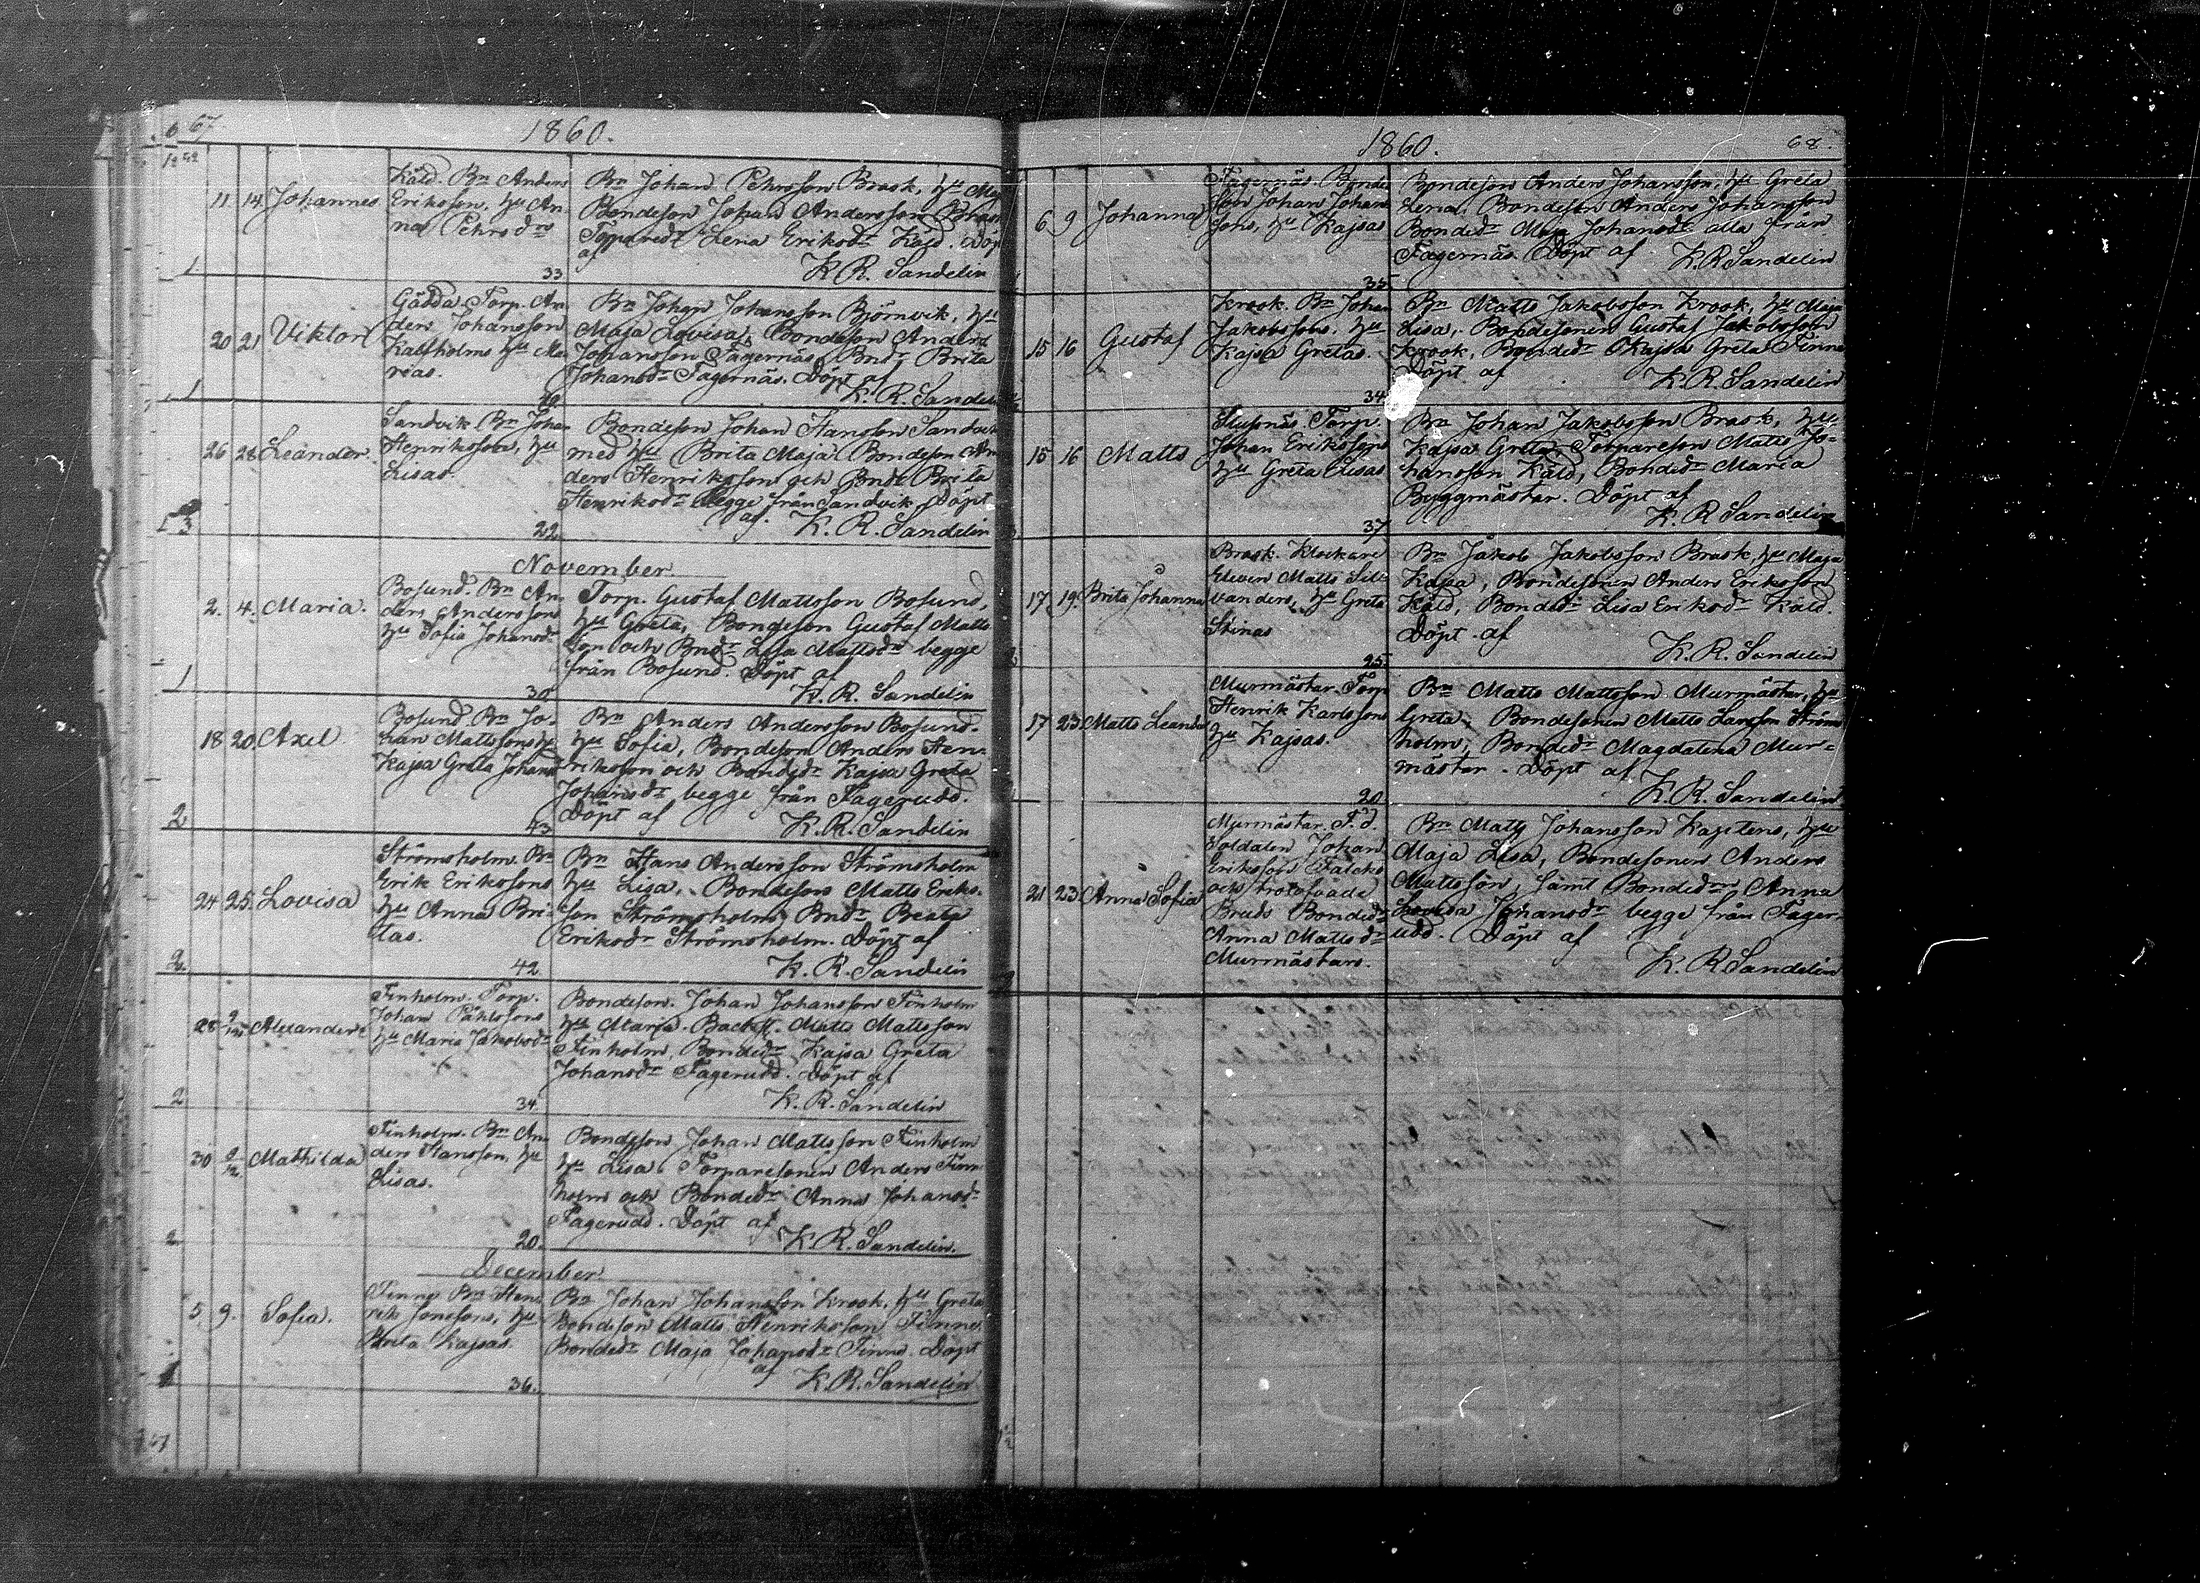 67
1860.
11 14 Johannes
Käld. Bn Anders
Eriksson, hu An
na Pehrsdrs
Bn Johan Pehrsson Brask, hu Maja
Bondeson Johan Andersson Brask
Lena Eriksdr Käld. Döpt
af K. R. Sandelin
1
33
20 21 Viktor
Gädda. Torp. An
ders Johansson
Kalfholms hu Ma
rias.
Bn Johan Johansson Björnvik, hu
Maja Lovisa, Bondeson Anders
Johansson Fagernäs, Bndr Brita
Johansdr Fagernäs. Döpt af
K. R. Sandelin
1
26 28 Leander.
Sandvik Bn Johan
Henrikssons, hu
Lisas.
Bondeson Johan Hansson Sandvik
med hu Brita Maja Bondeson An
ders Henriksson och Bndr Brita
Henriksdr begge från Sandvik Döpt
af. K. R. Sandelin
3
22
November
2. 4. Maria.
Bosund. Bn An
ders Anderssons
hu Sofia Johansdr
Torp. Gustaf Mattsson Bosund,
hu Greta, Bondeson Gustaf Matts
son och Bndr Lisa Mattsdr begge
från Bosund. Döpt af
K. R. Sandelin
1
30
18 20 Axel
Bosund. Bn Jo-
han Mattssons hu
Kajsa Greta Johans
Bn Anders Andersson Bosund.
hu Sofia, Bondeson Anders Hen-
riksson och Bondedr Kajsa Greta
Johansdr begge från Fagerudd.
Döpt af K. R. Sandelin
2
43
24 25. Lovisa
Strömsholm. Bn
Erik Erikssons
hu Anna Bri-
tas.
Bn Hans Andersson Strömsholm
hu Lisa. Bondeson Matts Eriks-
son Strömsholm Bndr Beata
Eriksdr Strömsholm. Döpt af
K. R. Sandelin
2
42
28 2/12 Alexander
Finholm. Torp.
Johan Påhlssons
hu Maria Jakobsdr
Bondeson. Johan Johansson Finholm
hu Maria. Matts Mattsson
Finholm, Bondedr Kajsa Greta
Johansdr Fagerudd. Döpt af
K. R. Sandelin
2
34
30 2/12 Mathilda
Finholm. Bn An
ders Hansson, hu
Lisas.
Bondeson Johan Mattsson Finholm
hu Lisa. Torparesonen Anders Finn
holm och Bondedr Anna Johansdr
Fagerudd. Döpt af
K. R. Sandelin.
2
20.
December
5. 9. Sofia.
Finne Bn Hen
rik Jonssons, hu
Brita Kajsas.
Bn Johan Johansson Krook, hu Greta
Bondeson Matts Henriksson Finne.
Bondedr Maja Johansdr Finne. Döpt
af K. R. Sandelin
36.
1860. 68.
6 9 Johanna
Fagernäs. Bonde
son Johan Johans
sons, hu Kajsas
Bondeson Anders Johansson, hu Greta
Lena. Bondeson Anders Johansson
Bondedr Maja Johansdr alla från
Fagernäs. Döpt af K. R Sandelin
35
15 16 Gustaf
Krook. Bn Johan
Jakobssons, hu
Kajsa Gretas.
Bn Matts Jakobsson Krook, hu Maja
Lisa, Bondesonen Gustaf Jakobsson
Krook, Bondedr Kajsa Greta Finne
Döpt af K. R. Sandelin
34
15 16 Matts
Slussnäs. Torp.
Johan Erikssons
hu Greta Lisas
Bn Johan Jakobsson Brask, hu
Kajsa Greta, Torpareson Matts Jo-
hansson Käld, Bondedr Maria
Byggmästar. Döpt af
K. R Sandelin
37
17 19 Brita Johanna
Brask. Klockare
Eleven Matts Sil-
vanders, hu Greta
Stinas
Bn Jakob Jakobsson Brask, hu Maja
Kajsa, Bondesonen Anders Eriksson
Käld, Bondedr Lisa Eriksdr Käld.
Döpt af
K. R. Sandelin
25
17 23 Matts Leander
Murmästar. Torp
Henrik Karlssons
hu Kajsas.
Bn Matts Mattsson Murmästar, hu
Greta, Bondesonen Matts Larsson Ström
holm, Bondedr Magdalena Mur-
mästar. Döpt af
K. R. Sandelin
20
21 23 Anna Sofia
Murmästar. F. d.
Soldaten Johan
Eriksson Falcks
och trolofvade
Bruds Bondedr
Anna Mattsdr
Murmästars.
Bn Matts Johansson Kapitens, hu
Maja Lisa, Bondesonen Anders
Mattsson, samt Bondedr Anna
Lovisa Johansdr begge från Fager-
udd. Döpt af
K. R Sandelin